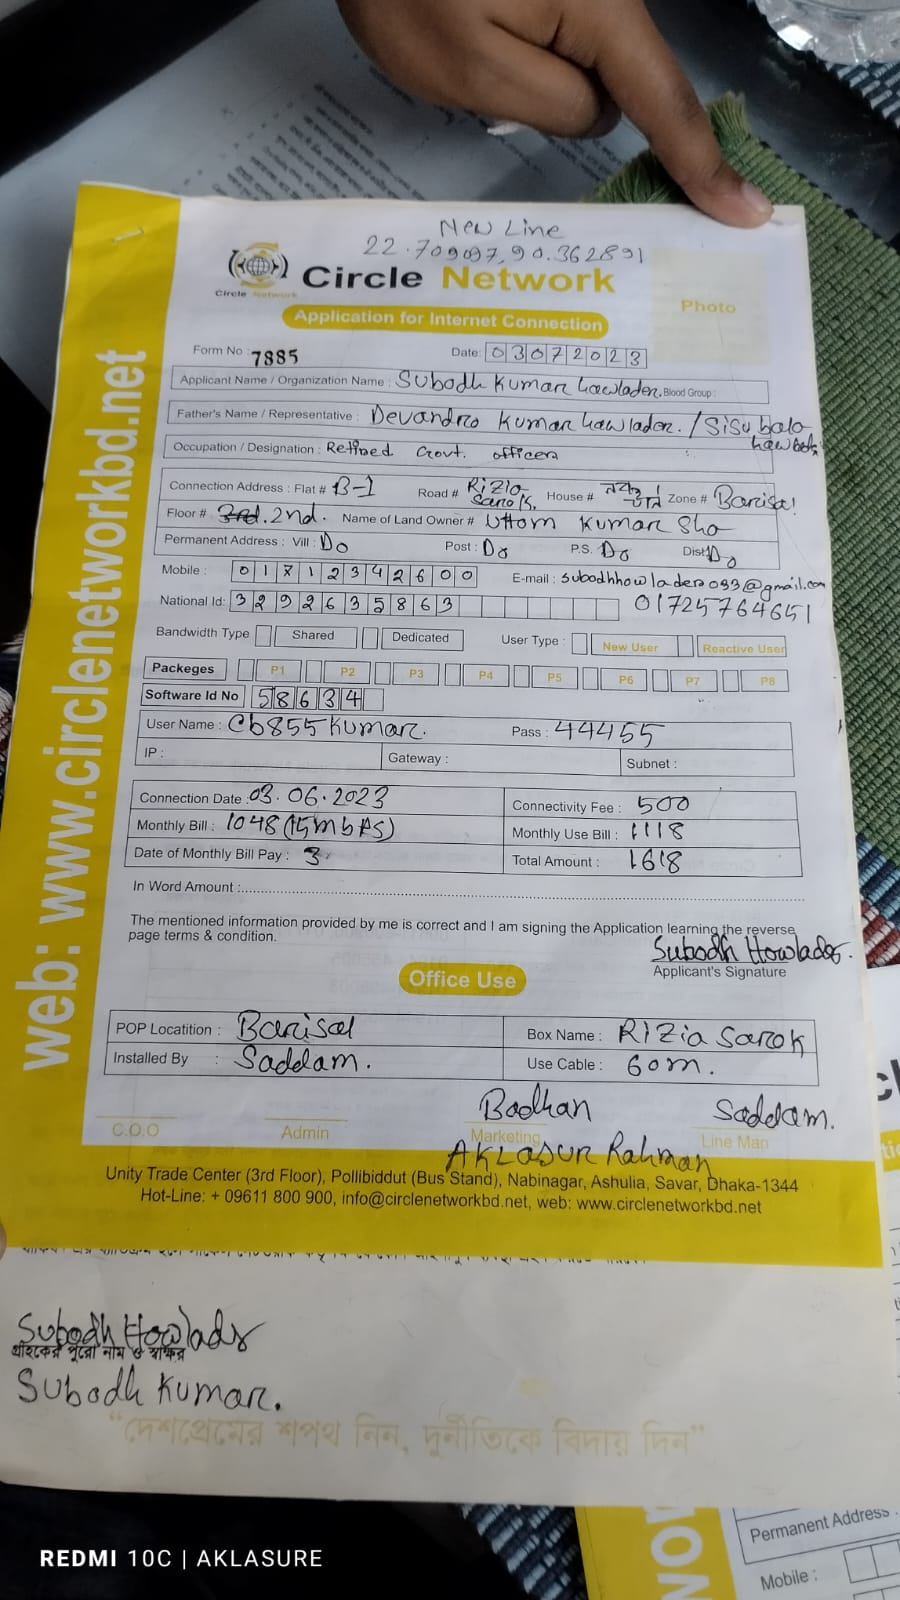 New Line
22.709097,90.362891
Circle Network
Circle Network
Photo
Application for Internet Connection
Form No : 7885 Date: 03072023
Applicant Name / Organization Name : Subodh Kumar hawlader. Blood Group :
Father's Name / Representative : Devandro Kumar hawlader. / Sisu balo
Occupation / Designation : Retired Govt. officer
Connection Address : Flat # B-1 Road # Rizia Sarok. House # Zone # Barisal
Floor # 3rd. 2nd. Name of Land Owner # Uttom Kumar Sho
Permanent Address : Vill : Do Post : Do P.S. Do Dist: Do
Mobile : 01712342600 E-mail : subodhhowlader093@gmail.com
National Id: 3292635863 01725764651
Bandwidth Type Shared Dedicated User Type : New User Reactive User
Packeges P1 P2 P3 P4 P5 P6 P7 P8
Software Id No 58634
User Name : Cb855kumar. Pass : 44455
IP : Gateway : Subnet :
Connection Date : 03.06.2023 Connectivity Fee : 500
Monthly Bill : 1048 (15mbps) Monthly Use Bill : 1118
Date of Monthly Bill Pay : 3 Total Amount : 1618
In Word Amount :
The mentioned information provided by me is correct and I am signing the Application learning the reverse
page terms & condition.
Subodh Howlader.
Applicant's Signature
Office Use
POP Locatition : Barisal Box Name : Rizia Sarok
Installed By : Saddam. Use Cable : 60m.
Badhan Saddam.
C.O.O Admin Marketing Line Man
Aklasur Rahman
Unity Trade Center (3rd Floor), Pollibiddut (Bus Stand), Nabinagar, Ashulia, Savar, Dhaka-1344
Hot-Line: + 09611 800 900, info@circlenetworkbd.net, web: www.circlenetworkbd.net
web: www.circlenetworkbd.net
Subodh Howlader
গ্রাহকের পুরো নাম ও স্বাক্ষর
Subodh Kumar.
“দেশপ্রেমের শপথ নিন, দুর্নীতিকে বিদায় দিন”
Permanent Address :
Mobile :
REDMI 10C | AKLASURE